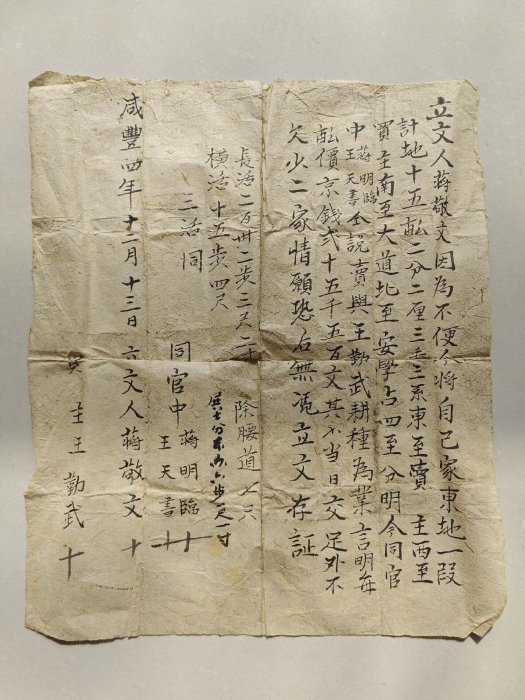 立文人蔣敬文因為不便今將自己家東地一段
計地十五畝二分二厘三毫二系東至賣主西至
買主南至大道北至安學占四至分明今同官
中蔣明臨王天書仝說賣與王勤武耕種為業言明每
畝價京錢弍十五千五百文其錢當日交足外不
欠少二家情願恐后無凭立文存証
長活二百卅二步三尺二寸 除腰道七尺
橫活十五步四尺
三活同
同官中蔣明臨十王天書十
咸豐四年十二月十三日立文人蔣敬文十
買主王勤武十